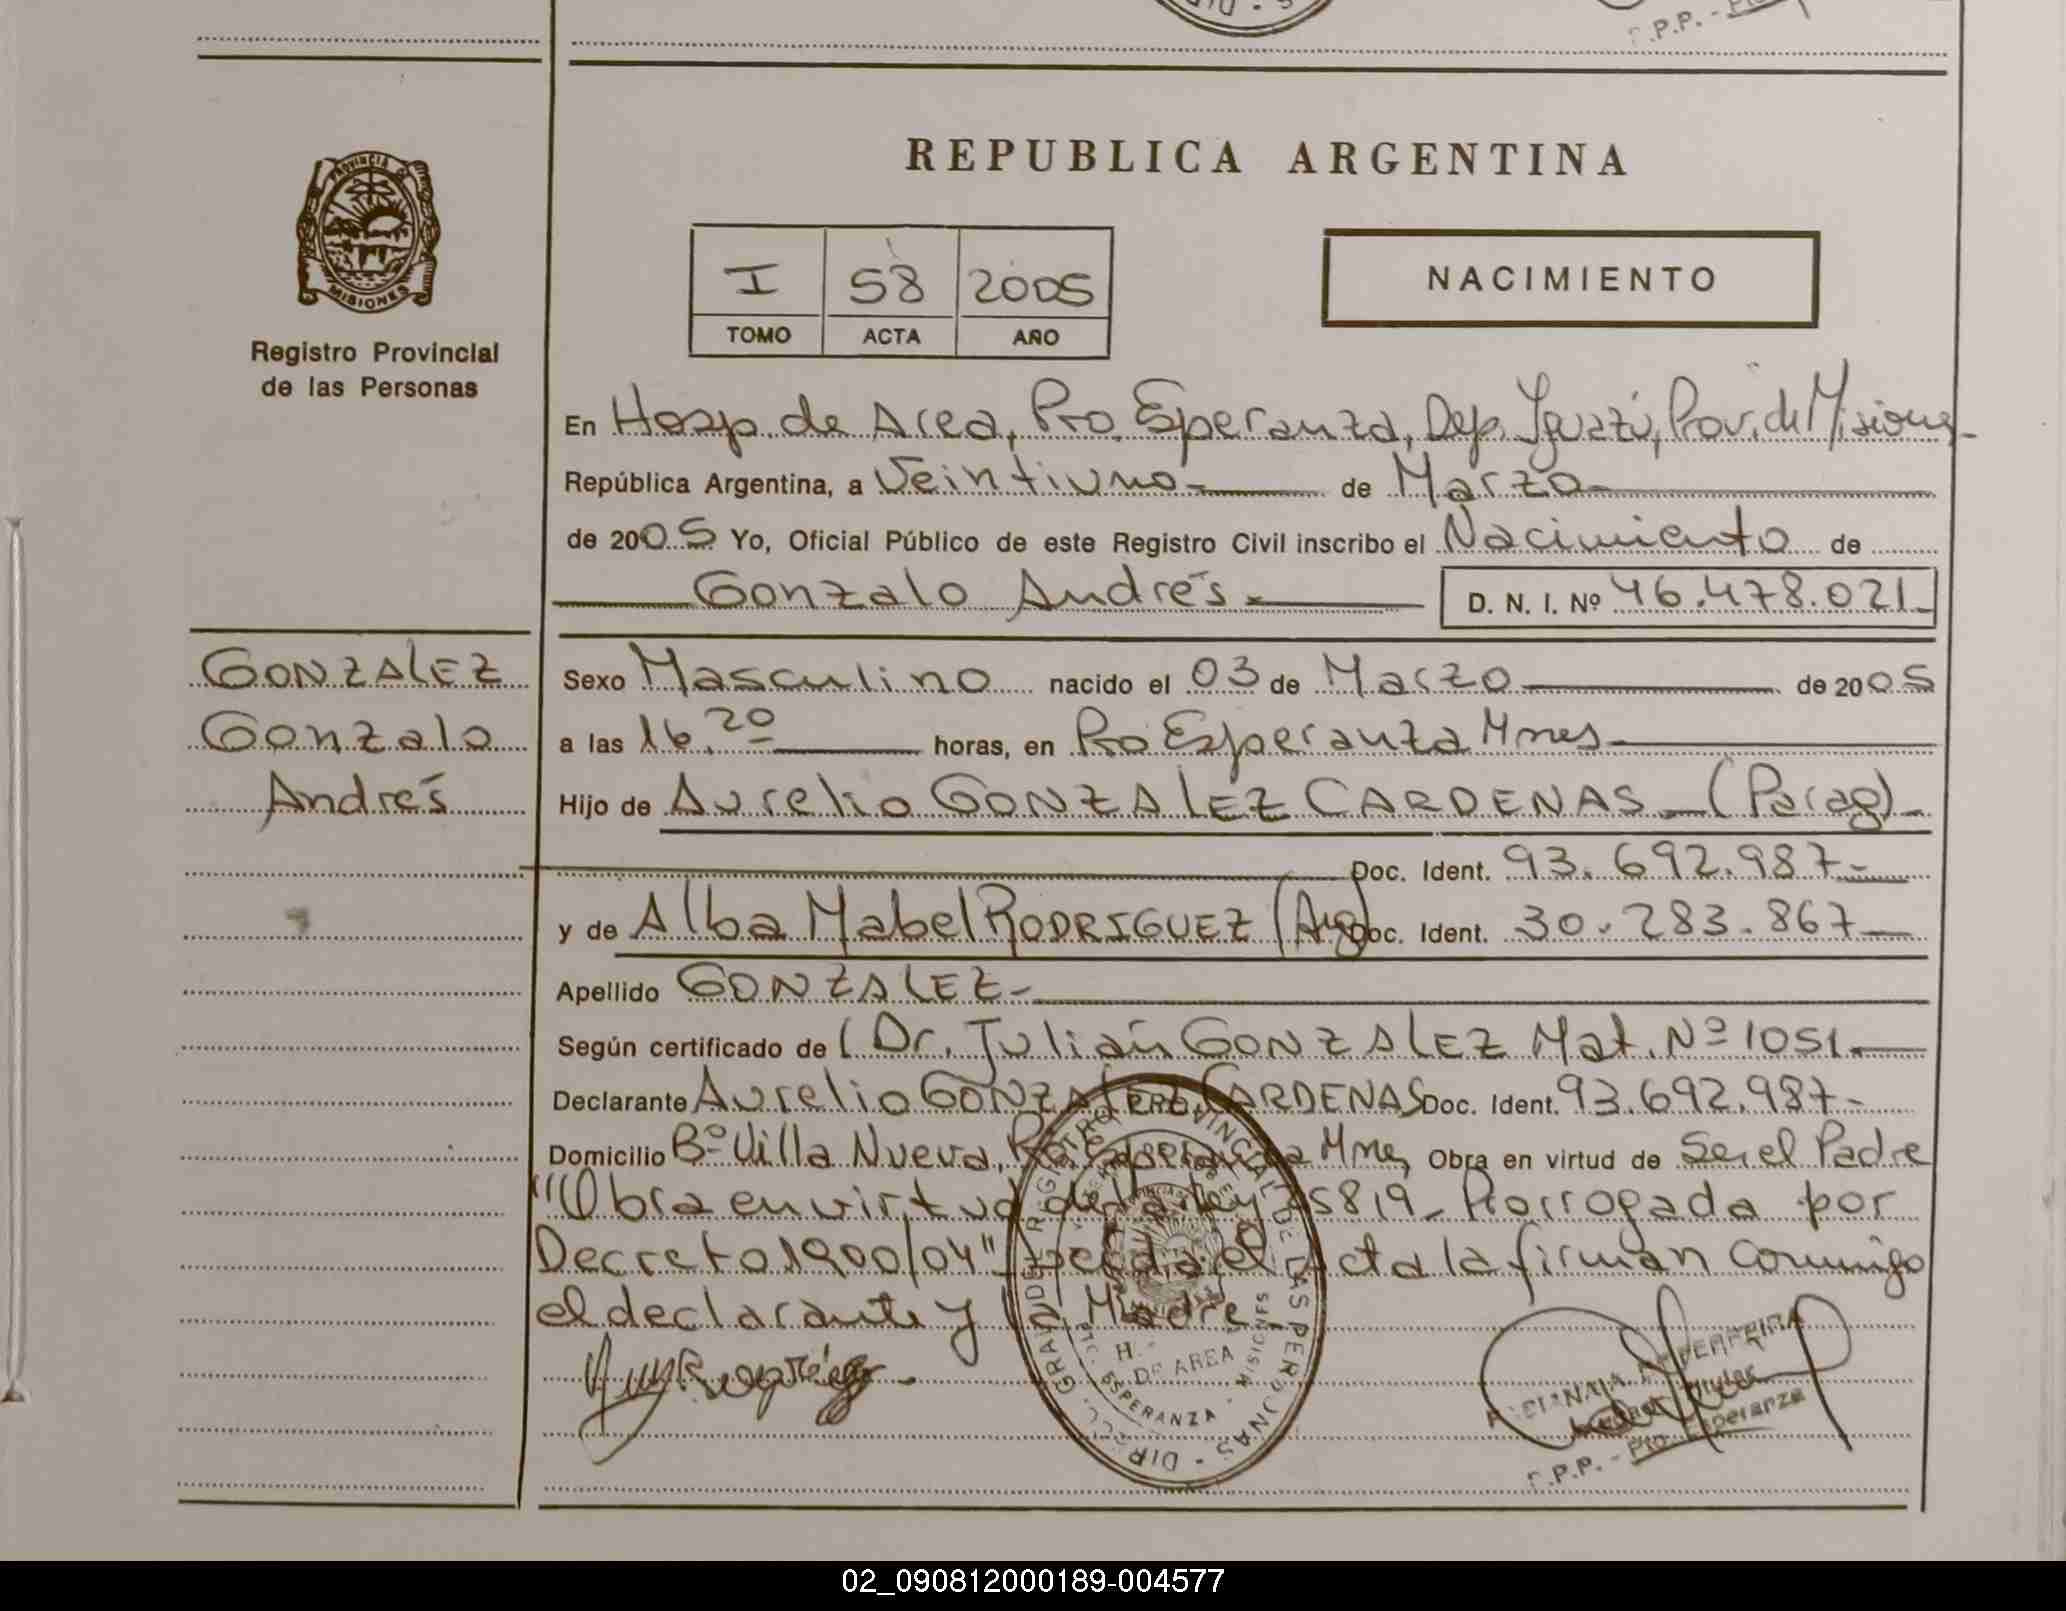 REPUBLICA ARGENTINA
PROVINCIA DE
MISIONES
Registro Provincial
de las Personas
I 58 2005
TOMO ACTA AÑO
NACIMIENTO
En Hosp. de Area, Pto. Esperanza, Dep. Iguazú, Prov. de Misiones-
República Argentina, a Veintiuno- de Marzo-
de 2005 Yo, Oficial Público de este Registro Civil inscribo el Nacimiento de
Gonzalo Andrés.- D. N. I. Nº 46.478.021-
GONZALEZ
Gonzalo
Andrés
Sexo Masculino nacido el 03 de Marzo de 2005
a las 16.20 horas, en Pto Esperanza Mnes-
Hijo de Aurelio GONZALEZ CARDENAS-(Parag)-
Doc. Ident. 93.692.987-
y de Alba Mabel RODRIGUEZ (Arg) Doc. Ident. 30.283.867-
Apellido GONZALEZ-
Según certificado de (Dr. Julián GONZALEZ Mat. Nº 1051.-
Declarante Aurelio GONZALEZ CARDENAS Doc. Ident. 93.692.987-
Domicilio Bº Villa Nueva, Pto Esperanza Mnes, Obra en virtud de Ser el Padre
"Obra en virtud de la Ley 25819- Prorrogada por
Decreto 1900/04" Leída el Acta la firman conmigo
el declarante y la Madre
REGISTRO PROVINCIAL DE LAS PERSONAS
DE AREA
PTO. ESPERANZA - MISIONES
FERREIRA
Titular
R.P.P. - Pto. Esperanza
02_090812000189-004577